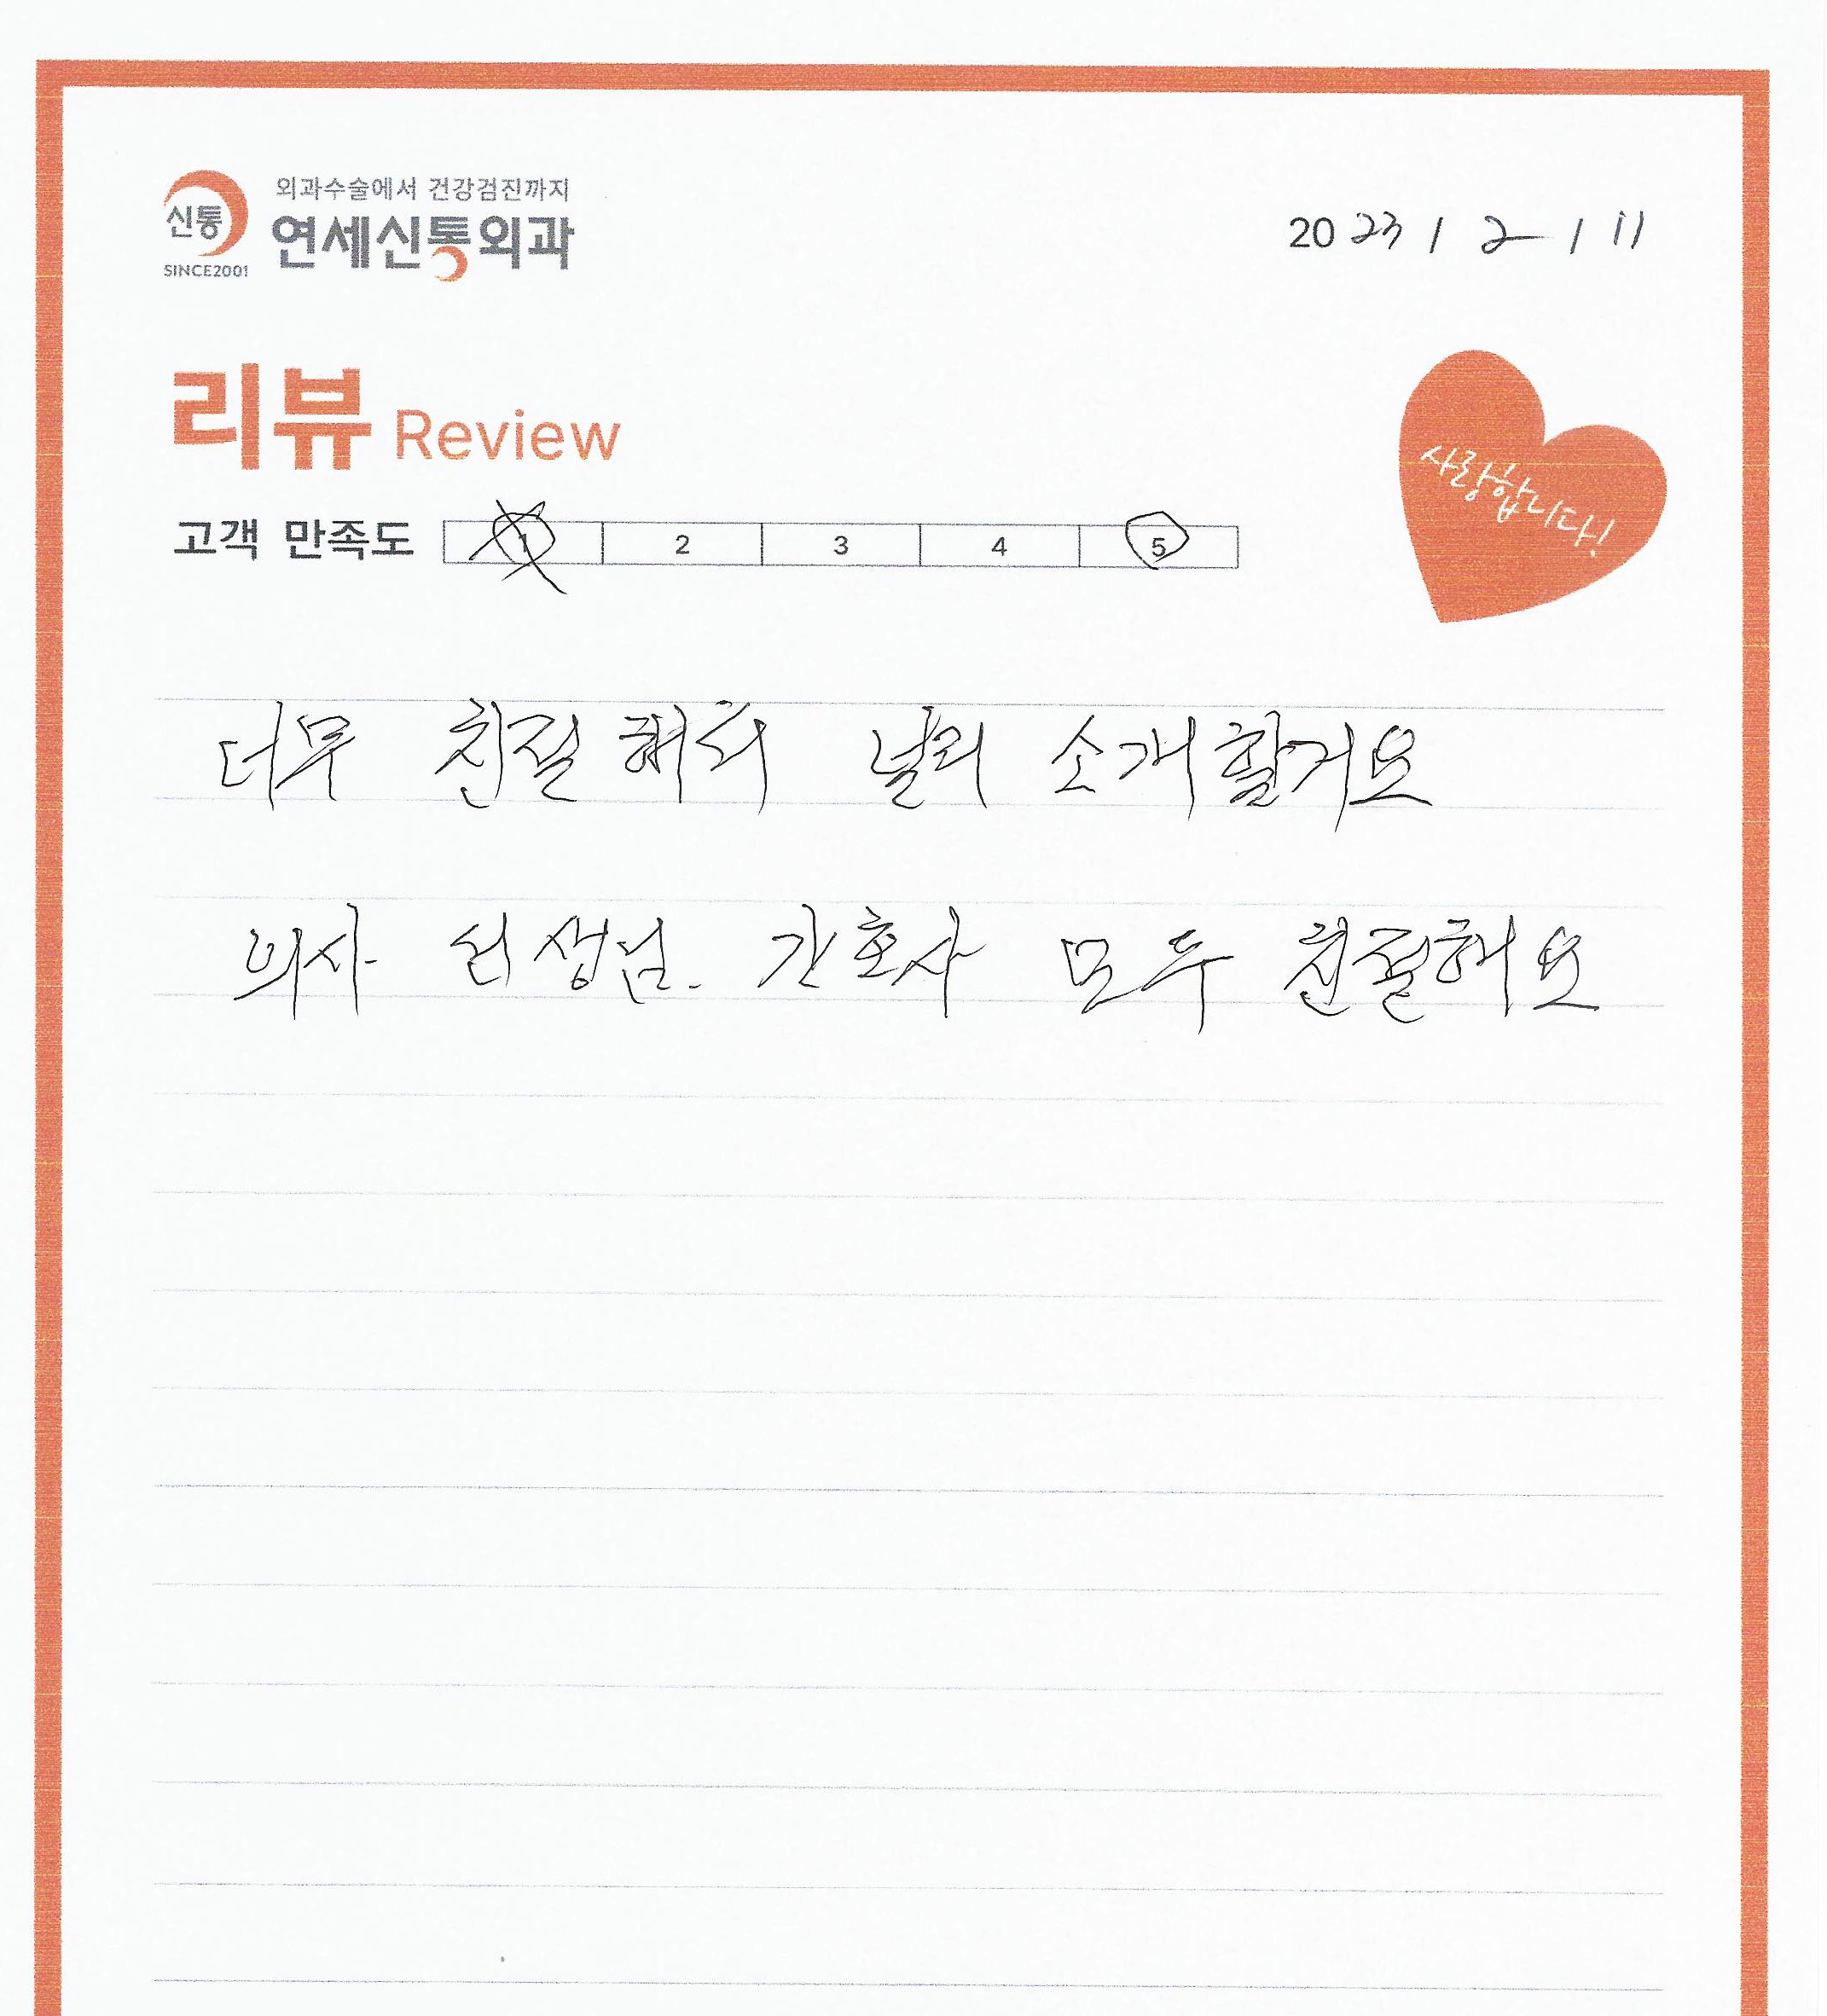 외과수술에서 건강검진까지
신통 연세신통외과
SINCE2001
2023 / 2 / 11
리뷰 Review
사랑합니다!
고객 만족도 1 2 3 4 5
너무 친절해서 널리 소개할거요
의사 선생님. 간호사 모두 친절해요